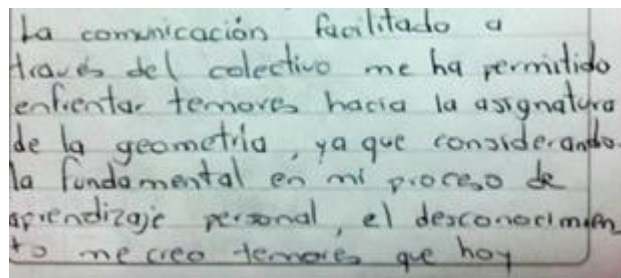 La comunicación facilitado a
través del colectivo me ha permitido
enfrentar temores hacia la asignatura
de la geometria, ya que considerando
la fundamental en mi proceso de
aprendizaje personal, el desconocimien
to me creo temores que hoy